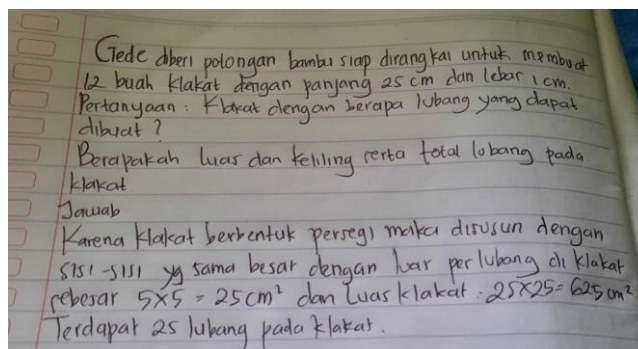 Gede diberi potongan bambu siap dirangkai untuk membuat
12 buah klakat dengan panjang 25 cm dan lebar 1 cm.
Pertanyaan : Klakat dengan berapa lubang yang dapat
dibuat ?
Berapakah luas dan keliling serta total lubang pada
klakat
Jawab
Karena klakat berbentuk persegi maka disusun dengan
sisi-sisi yg sama besar dengan luar per lubang di klakat
sebesar 5x5 = 25 cm² dan Luas klakat : 25x25 = 625 cm²
Terdapat 25 lubang pada klakat.